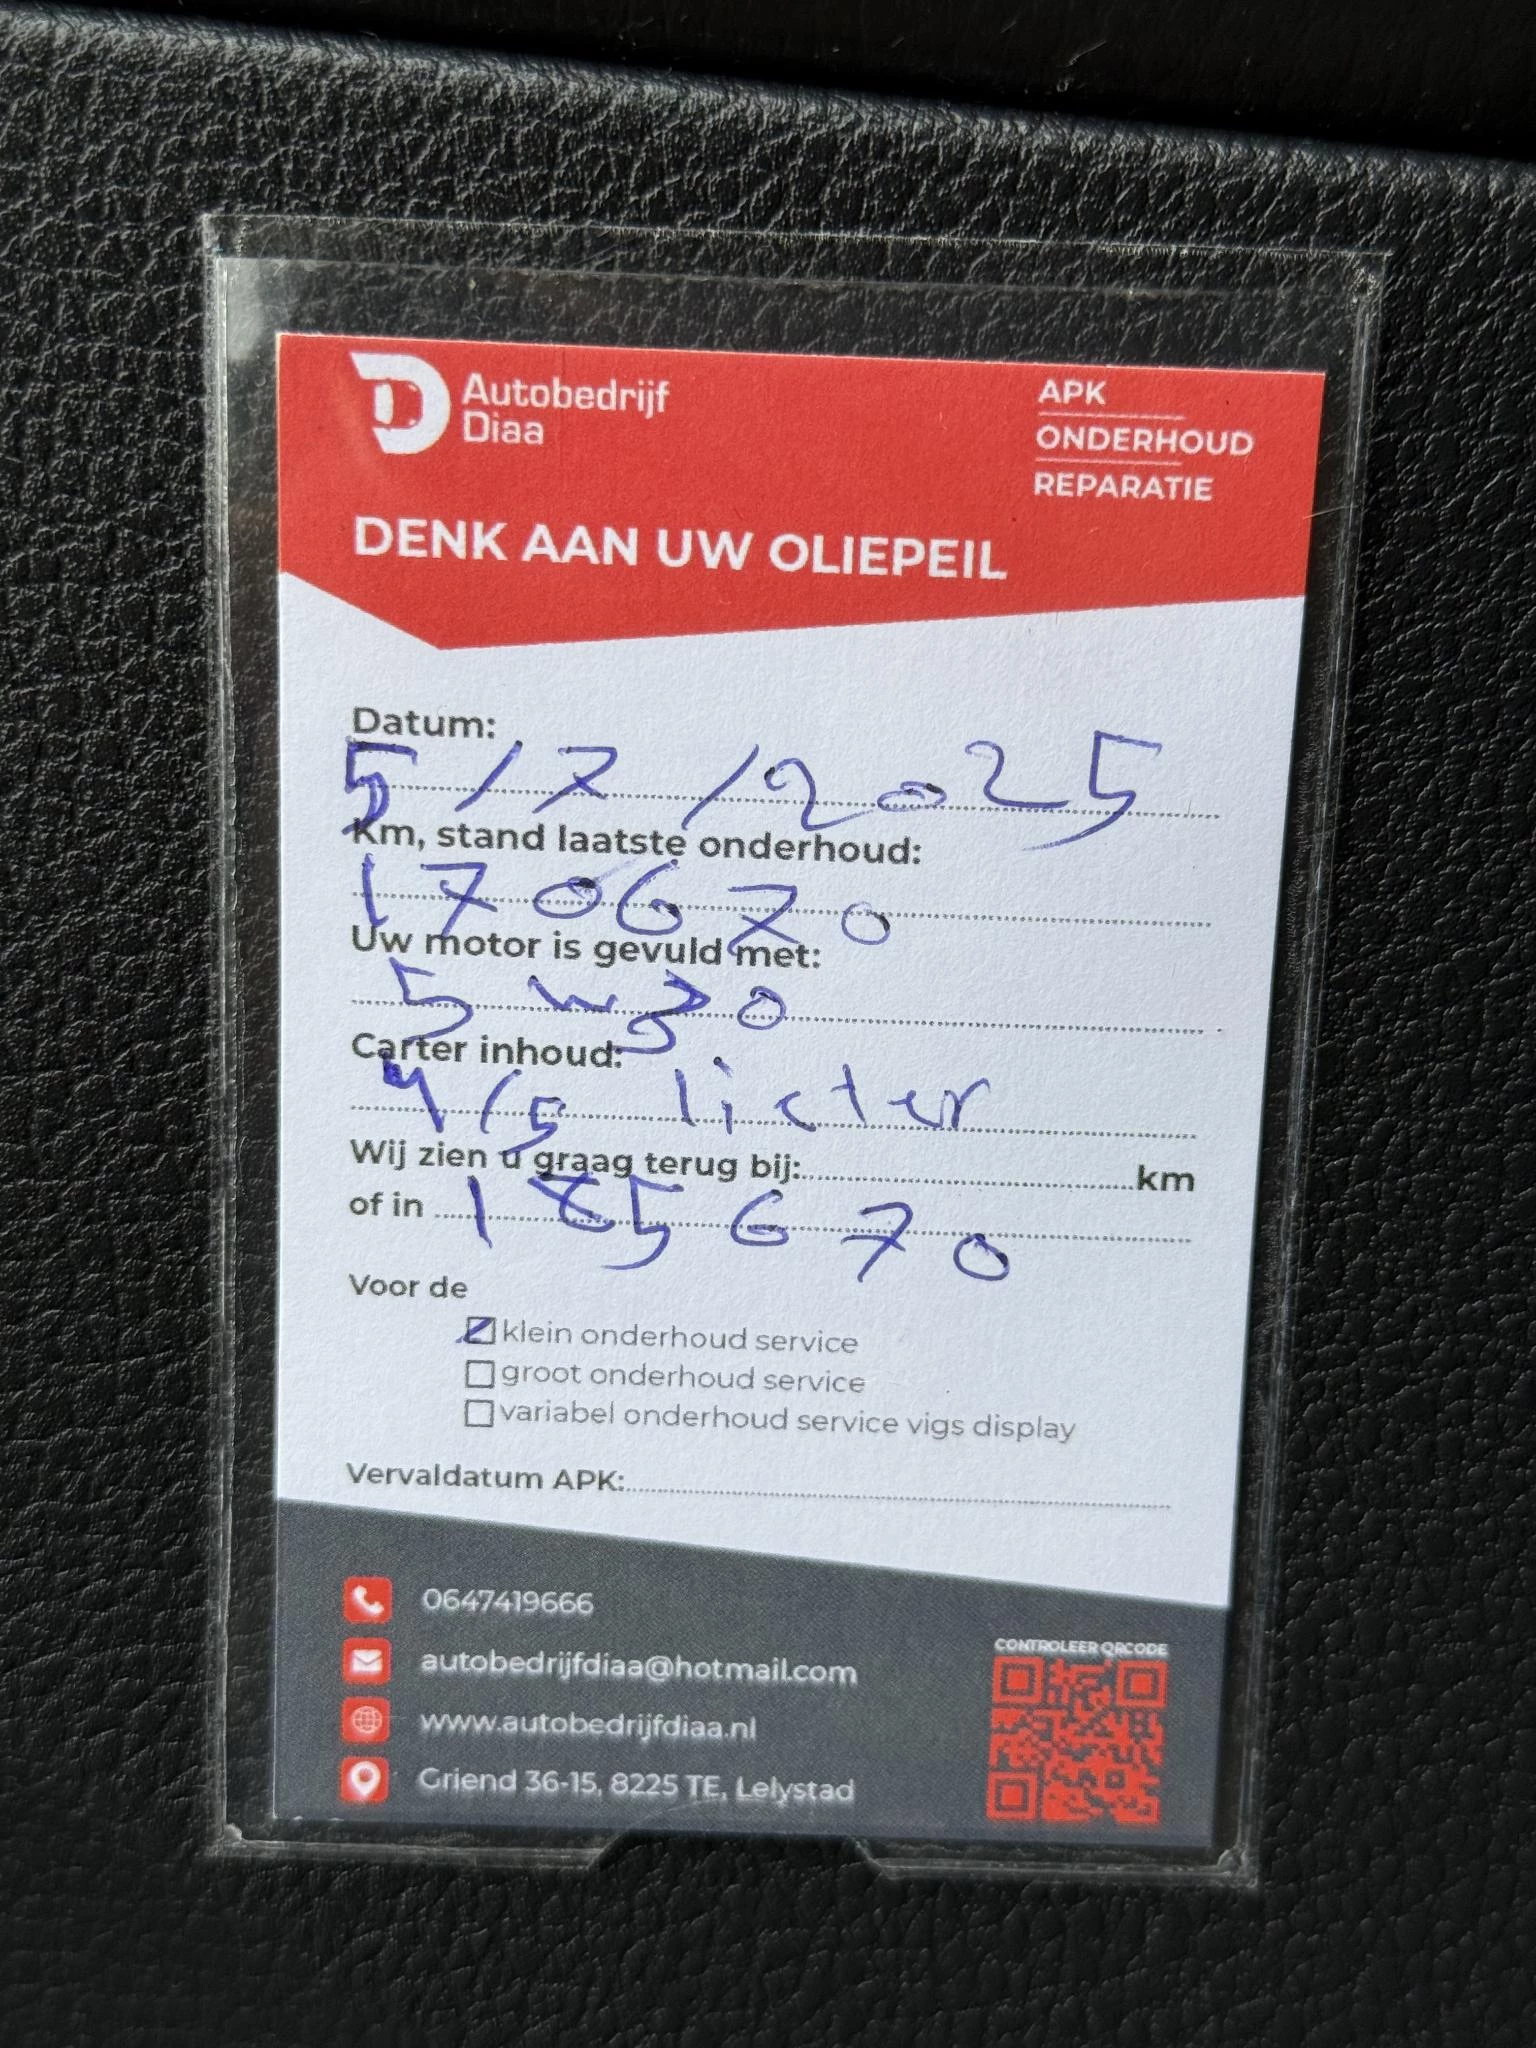 Autobedrijf
Diaa
APK
ONDERHOUD
REPARATIE
DENK AAN UW OLIEPEIL
Datum:
5/7/2025
Km, stand laatste onderhoud:
170670
Uw motor is gevuld met:
5w30
Carter inhoud:
4/5 lieter
Wij zien u graag terug bij:..........km
of in 185670
Voor de
klein onderhoud service
groot onderhoud service
variabel onderhoud service vigs display
Vervaldatum APK:
0647419666
autobedrijfdiaa@hotmail.com
www.autobedrijfdiaa.nl
Griend 36-15, 8225 TE, Lelystad
CONTROLEER QRCODE